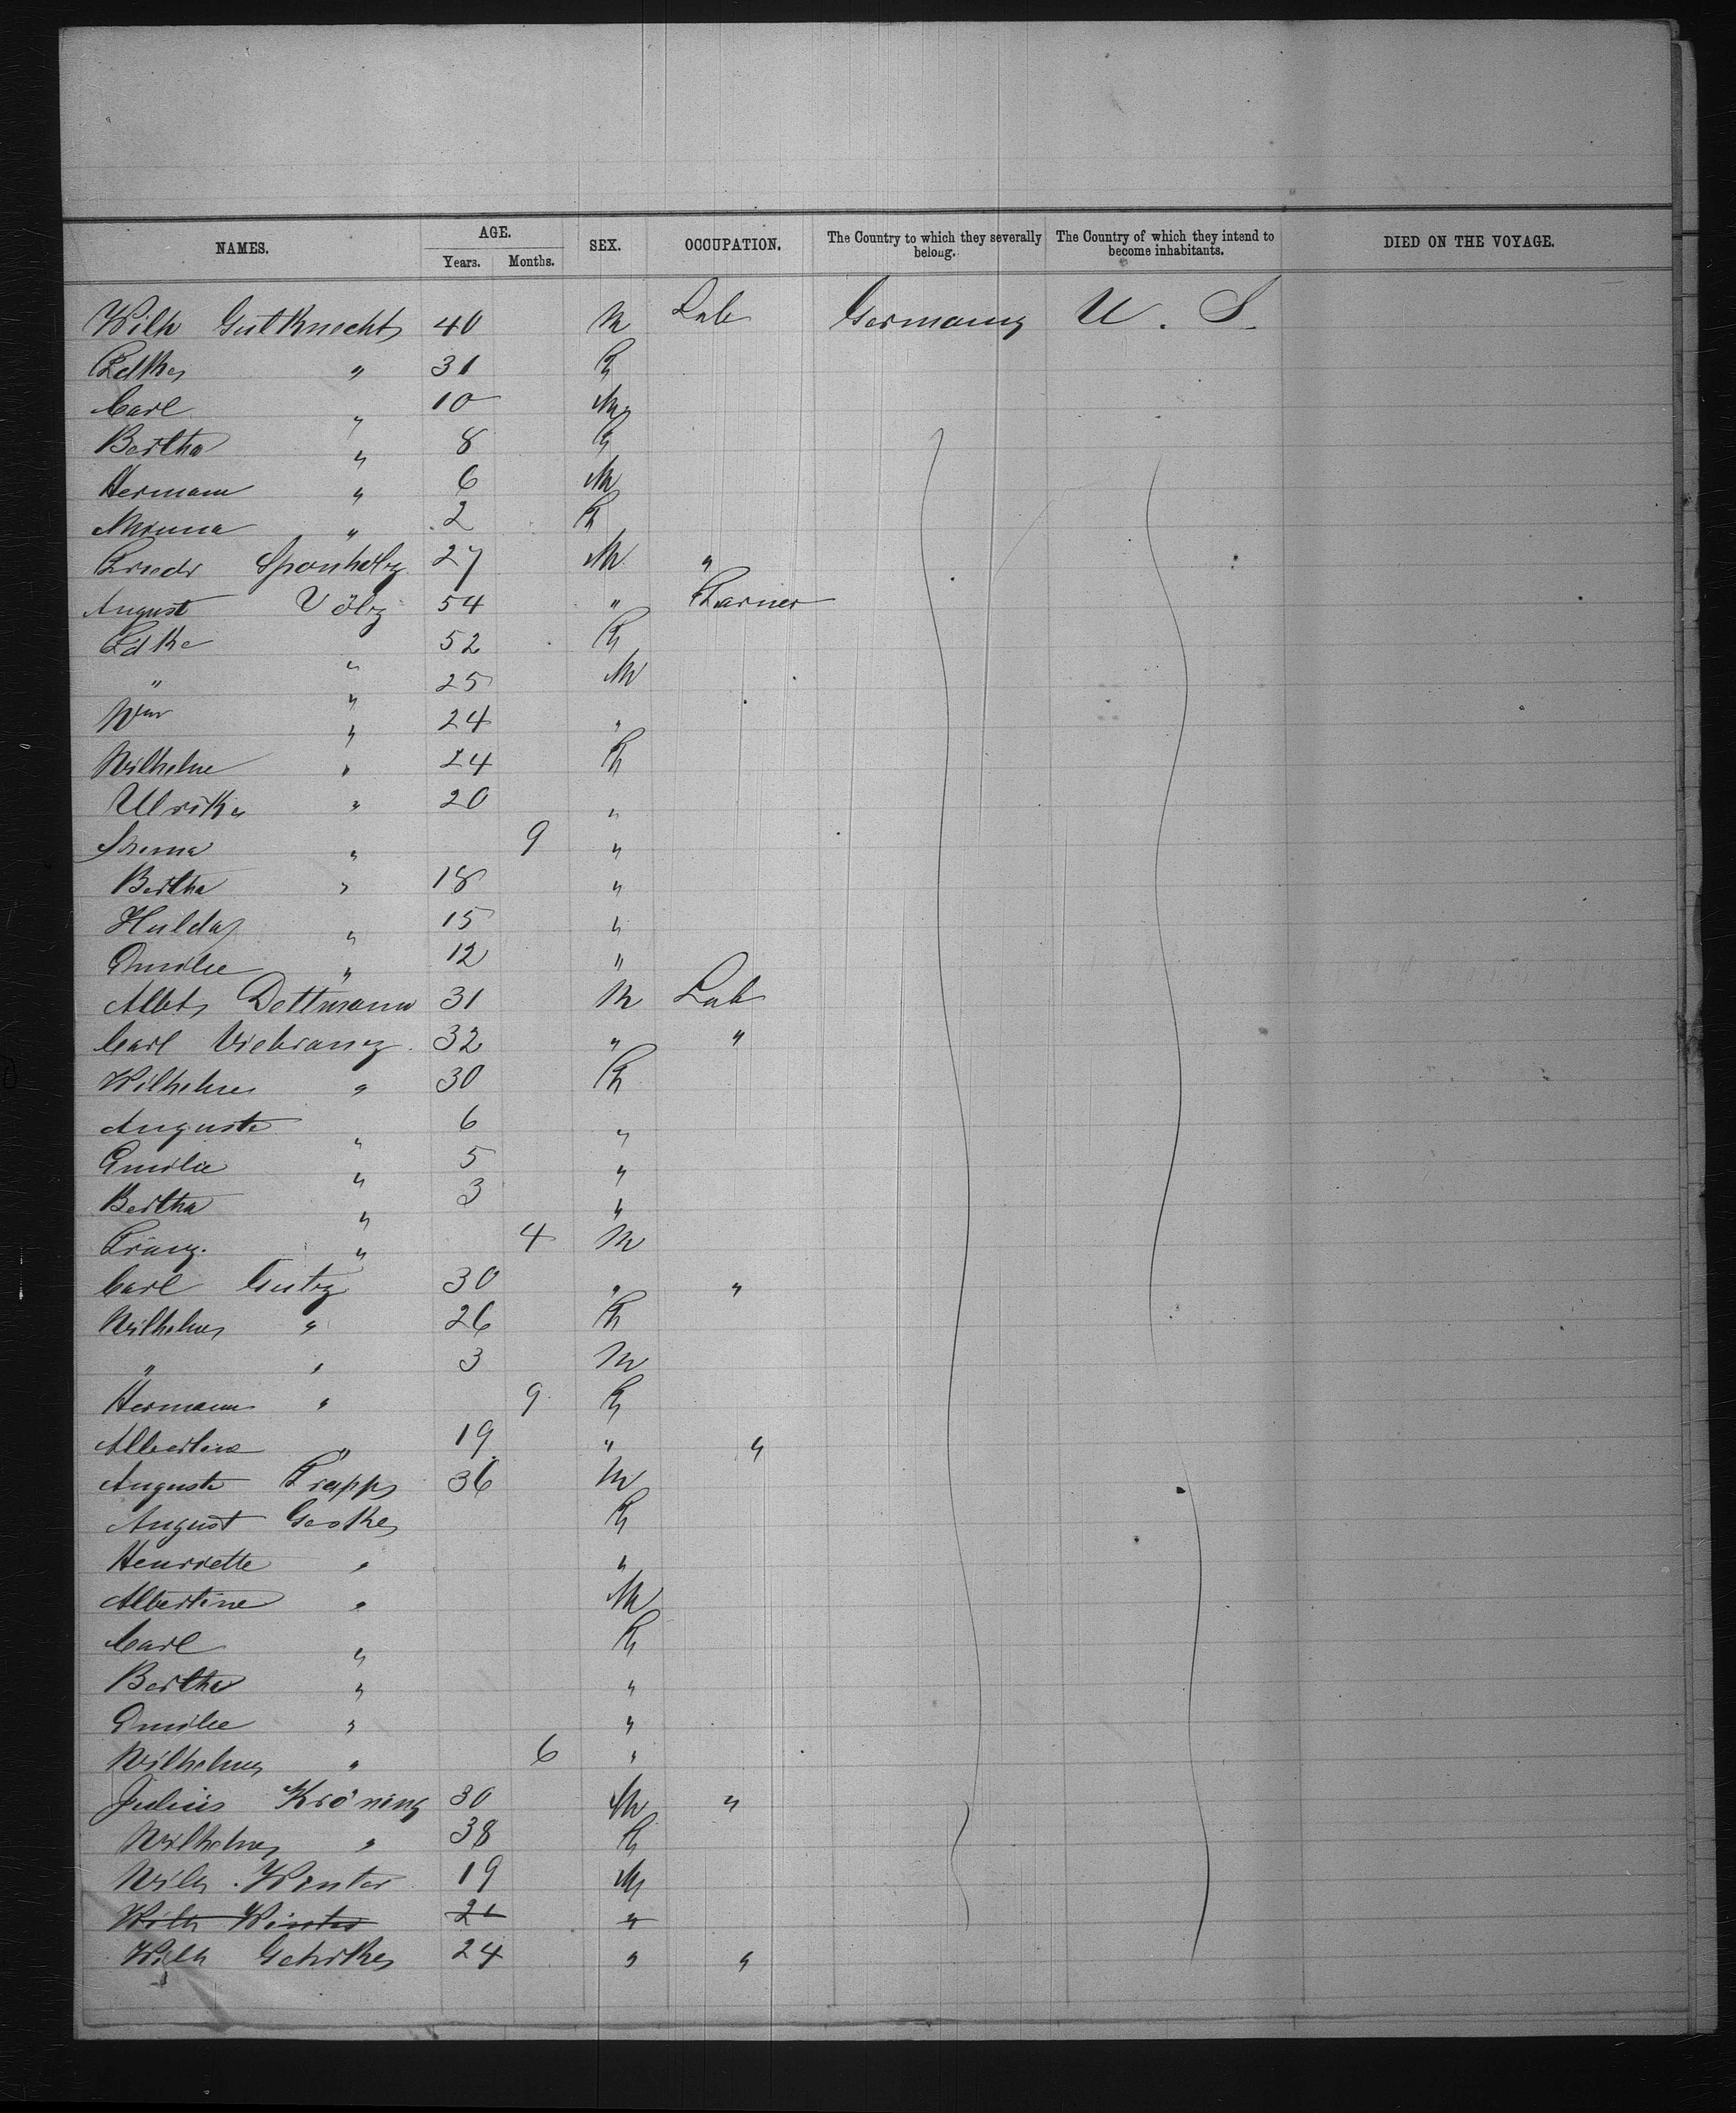 NAMES. AGE. SEX. OCCUPATION. The Country to which they severally belong. The Country of which they intend to become inhabitants. DIED ON THE VOYAGE.
Years. Months.
Wilh Gutknecht 40 M Lab Germany U. S.
" 31 F
Carl " 10 M
Bertha " 8 F
Hermann " 6 M
Minna " 2 F
Friedr Sponholz 27 M "
August Völz 54 " Farmer
52 F
" " 25 M
Wm " 24 "
Wilhelme " 24 F
Ulrike " 20 "
" 9 "
Bertha " 18 "
Hulda " 15 "
Emilie " 12 "
Albt Dettmann 31 M Lab
Carl Viebranz 32 " "
Wilhelme " 30 F
Auguste " 6 "
Emilie " 5 "
Bertha " 3 "
Franz " 4 M
Carl 30 " "
Wilhelme " 26 F
" " 3 M
Hermann " 9 F
Albertine " 19 " "
Auguste 36 M
August F
Henriette " "
Albertine " M
Carl " F
Bertha " "
Emilie " "
Wilhelme " 6 "
Julius Kröning 30 M "
Wilhelme " 38 F
Wilh Winter 19 M
Wilh Winter "
Wilh 24 " "